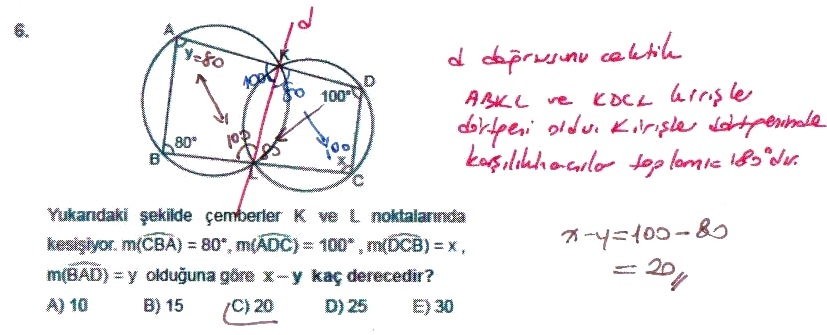 6.
d
A
y=80
K
100
80
D
100°
B
80°
100
80
100
x
L
C
d doğrusunu çektik
ABKL ve KDCL kirişler
dörtgeni oldu. Kirişler dörtgeninde
karşılıklı açılar toplamı = 180°dir.
Yukarıdaki şekilde çemberler K ve L noktalarında
kesişiyor. m(CBA) = 80°, m(ADC) = 100° , m(DCB) = x ,
m(BAD) = y olduğuna göre x – y kaç derecedir?
A) 10 B) 15 C) 20 D) 25 E) 30
x-y=100-80
= 20//